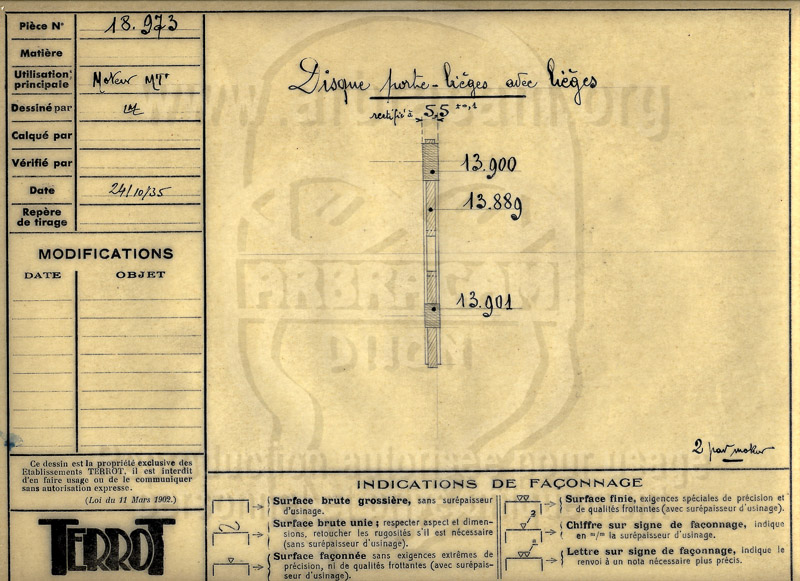 Pièce N° 18.973
Matière
Utilisation principale Moteur MTr
Dessiné par
Calqué par
Vérifié par
Date 24/10/35
Repère
de tirage
MODIFICATIONS
DATE OBJET
Ce dessin est la propriété exclusive des
Etablissements TERROT, il est interdit
d'en faire usage ou de le communiquer
sans autorisation expresse.
(Loi du 11 Mars 1902.)
TERROT
Disque porte-lièges avec lièges
rectifié à 5,5 ±0,1
13.900
13.889
13.901
2 par moteur
ARBRACAM
DIJON
INDICATIONS DE FAÇONNAGE
Surface brute grossière, sans surépaisseur
d'usinage.
Surface brute unie; respecter aspect et dimen-
sions, retoucher les rugosités s'il est nécessaire
(sans surépaisseur d'usinage).
Surface façonnée sans exigences extrêmes de
précision, ni de qualités frottantes (avec surépais-
seur d'usinage).
Surface finie, exigences spéciales de précision et
de qualités frottantes (avec surépaisseur d'usinage).
Chiffre sur signe de faconnage, indique
en m/m la surépaisseur d'usinage.
Lettre sur signe de façonnage, indique le
renvoi à un nota nécessaire plus précis.